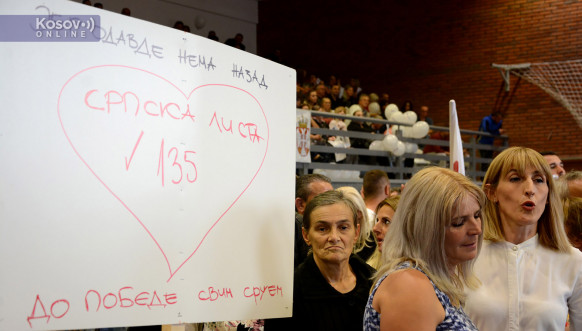 Kosovo
ONLINE
ОДАВДЕ НЕМА НАЗАД
СРПСКА ЛИСТА
✓ 135
ДО ПОБЕДЕ СВИМ СРЦЕМ